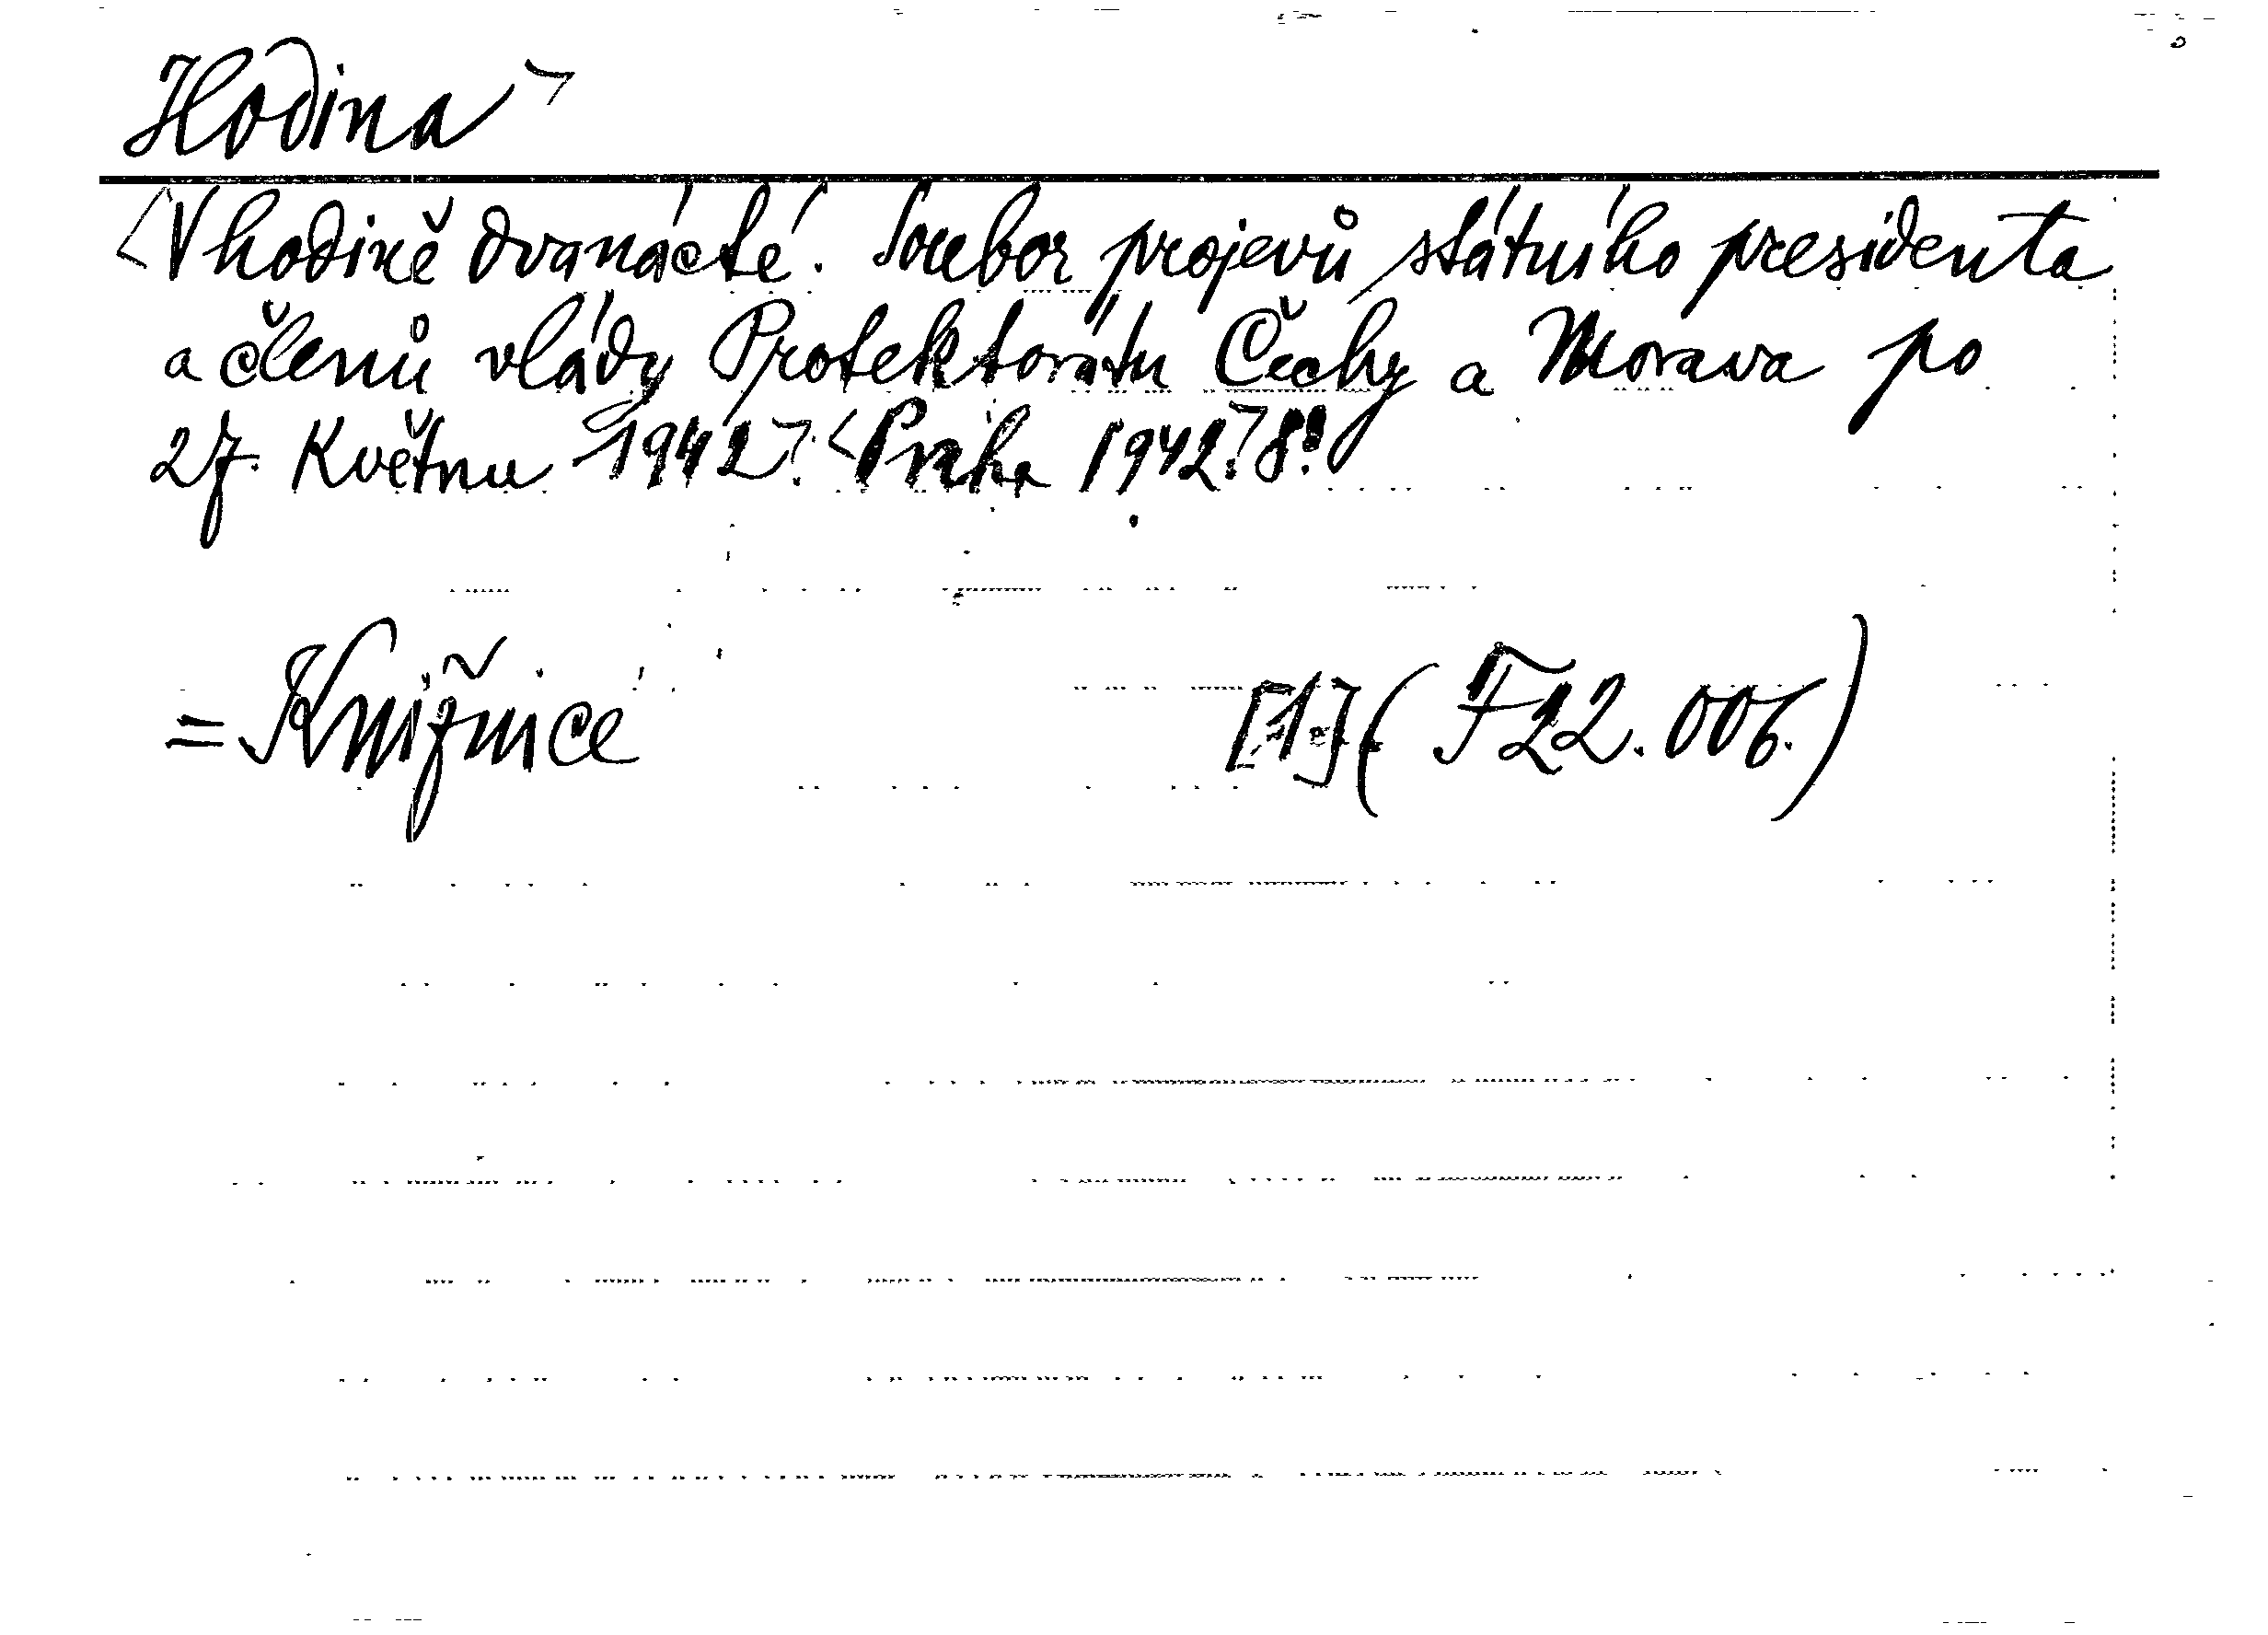 Hodina >
<V hodině dvanácté. Soubor projevů státního presidenta
a členů vlády Protektorátu Čechy a Morava po
27. Květnu 1942>. <Praha 1942>. 8°.
= Knižnice [1] (F 22.006.)